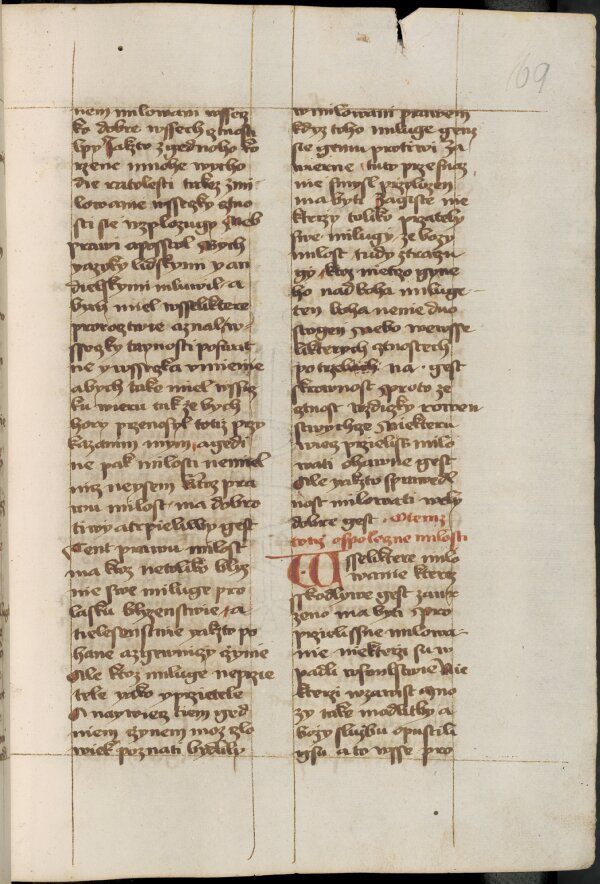 69
nem milowani wssez
ko dobre wssech cztnosti
lpy Jakzto zgednoho ko
rzene mnohe wycho
die ratolesti takez zmi
lowanie wsseczky cztno
sti sie wzplozugy Neb
prawi aposstol Bych
yazyky lidskymi y an
dielskymi mluwil a
bych miel wsselikterе
proroztwie a znal w
sseczky taynosti poswat
ne y wssczka vmienie
a bych take miel wssic
ku wieru tak ze bych
hory przenosyl totiz przy
kazanim mym a gedi
ne pak milosti nemiel
nicz neysem Ktoz pra
wu milost ma dobro
tiwy a trpieliwy gest
Tent prawu milost
ma ktoz netoliko bliz
nie swe miluge pro
lasku blizenstwie a
tielesenstwie yakzto po
hane a zgewniczy czynie
Ale ktoz miluge neprzie
tele yako y przietele
A naywiecz tiem ged
niem czynem moz czlo
wiek poznati bydlily
w milowani prawem
kdyz toho miluge genz
sie gemu protiwi za
wierne tuto przesnaz
nie smysl przylozen
ma byti Zagiste nie
kterzy toliko przately
swe milugy ze bozy
milost tudy ztraczu
gy ktoz nieczo gyne
ho nad boha miluge
ten boha nenie duo
stogen Anebo we wsse
likterych cztnostech
potrzebna gest
skrownost A proto ze
cztnost wzdiczky rowen
stwy chze Aniekteru
wiecz przielis milo
wati ohawne gest
Ale yakzto sprawedl
nost milowati wzdy
dobre gest O temz
totiz o sspolezne milosti
Wsselikterе milo
wanie kteraz
sskodliwe gest zawr
zeno ma byti A pro
przielissne milowa
nie niekterzi su w
padli w smilstwie Nie
kterzi w zawist Mno
zy take modlitby a
bozy sluzbu opustili
gsu a to wsse pro